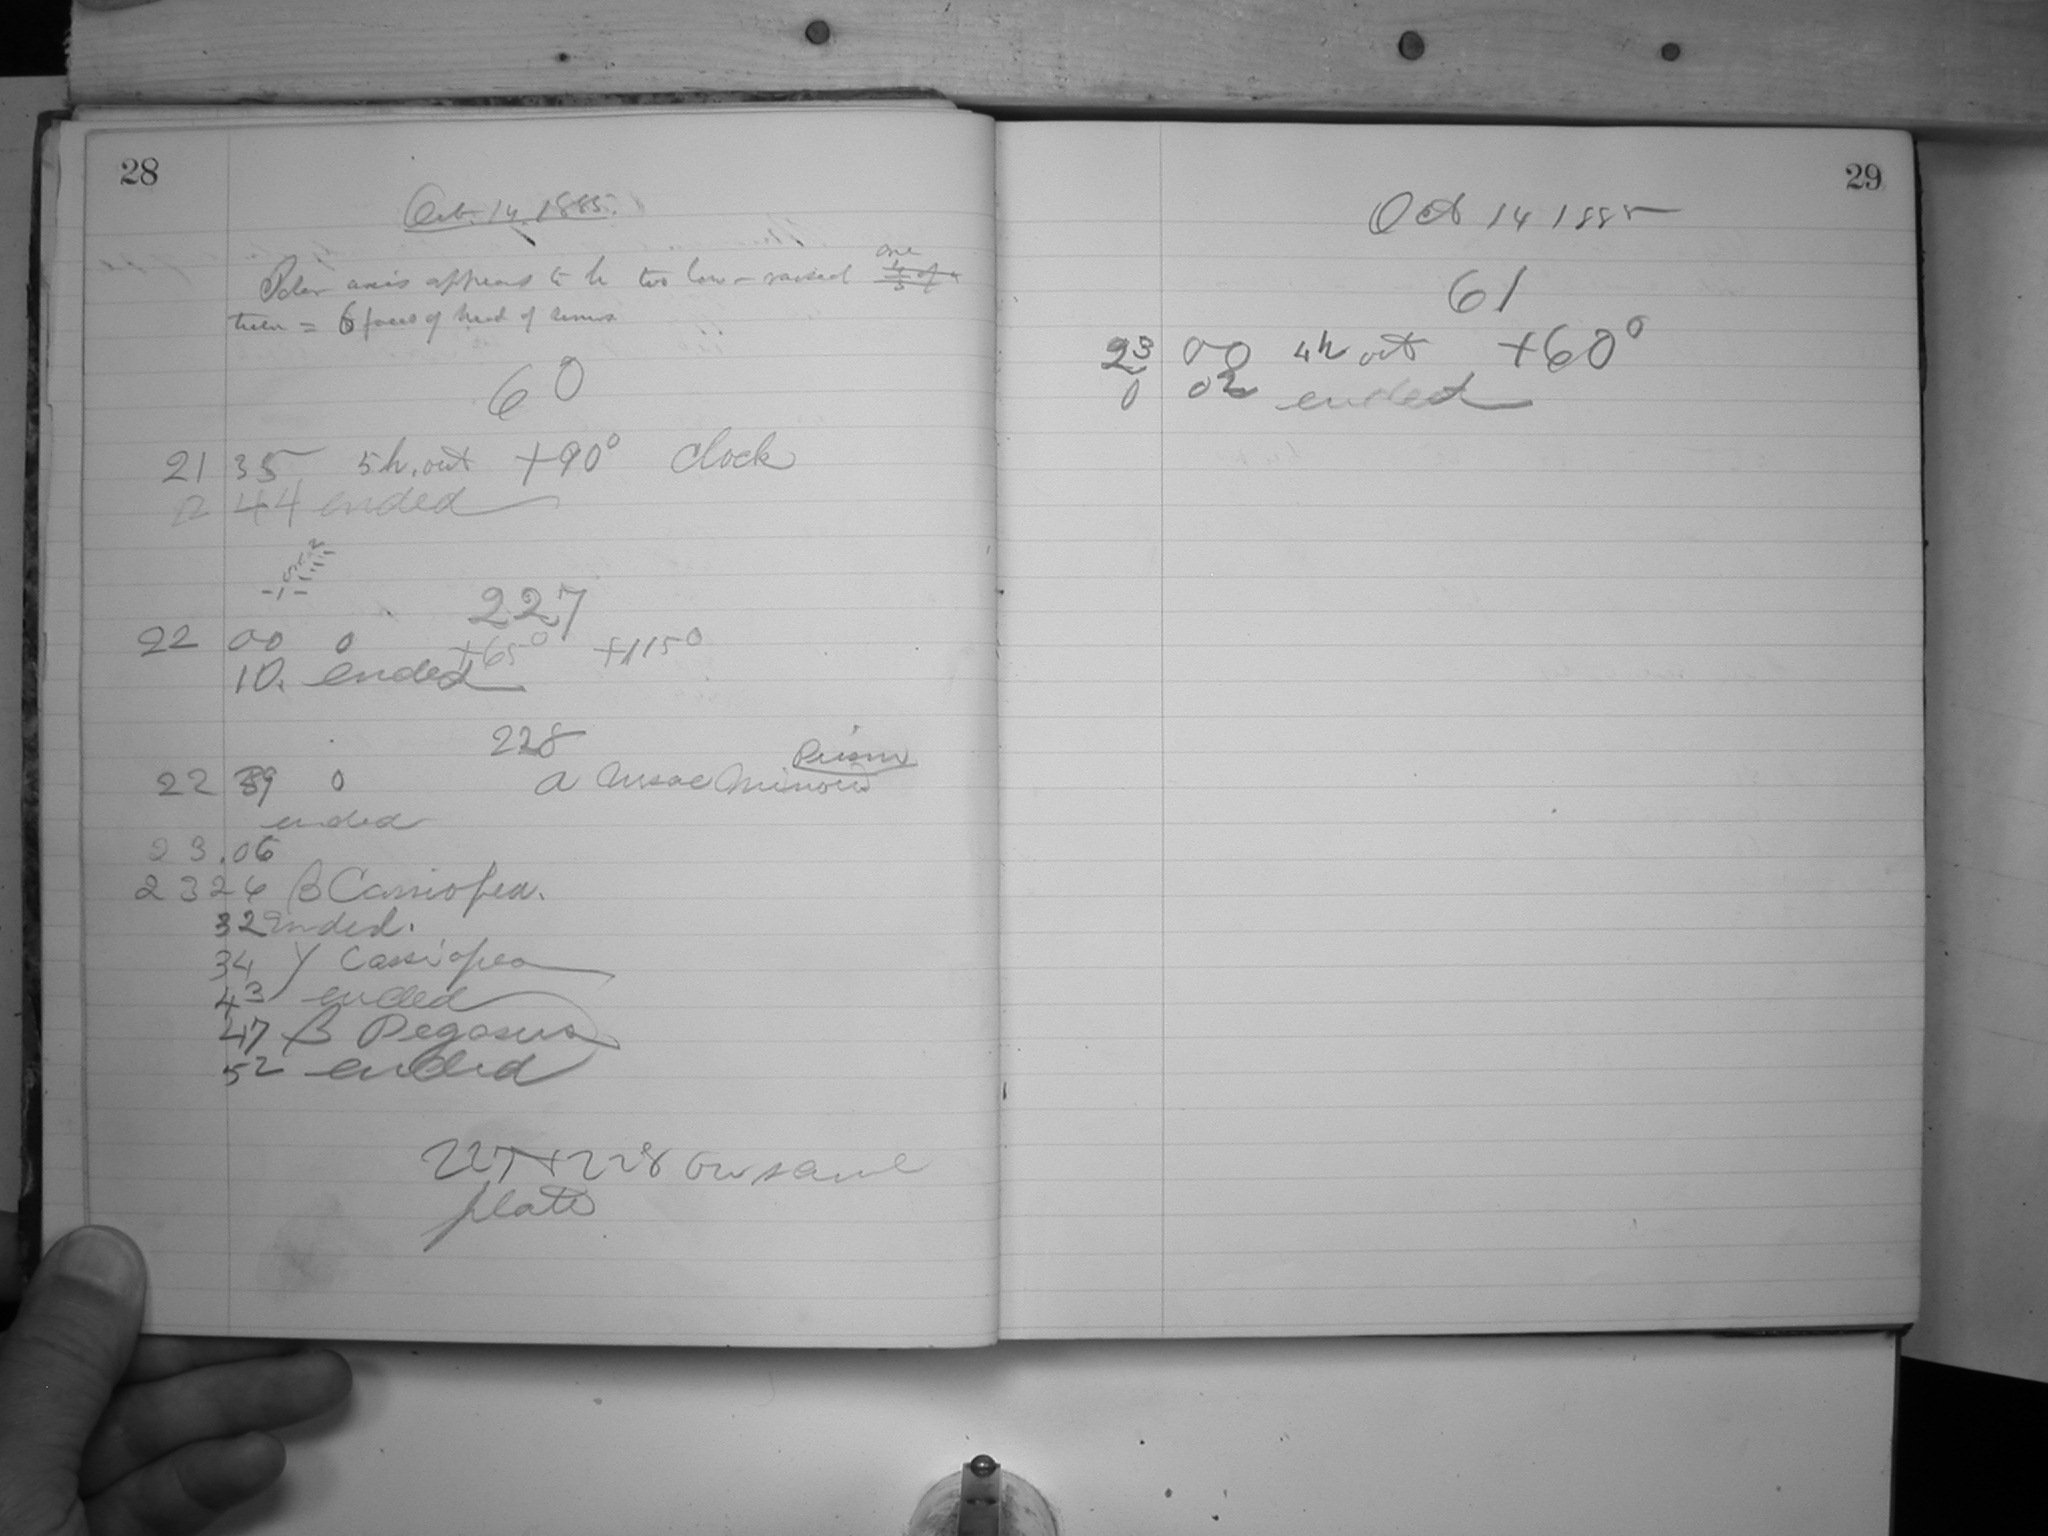 28
Oct. 14. 1885.
one
Polar axis appears to be too low - raised
turn = 6 faces of head of screws
60
21 35 5h. out +90° clock
44 ended
227
22 00 0 +65° +115°
10. ended
228
Prism
22 39 0 a Ursae Minoris
ended
23.06
23 26 β Cassiopea.
32 ended.
34 γ Cassiopea
43 ended
47 β Pegasus
52 ended
227 + 228 on same
plate
29
Oct 14 1885
61
23 00 4h out +60°
0 02 ended